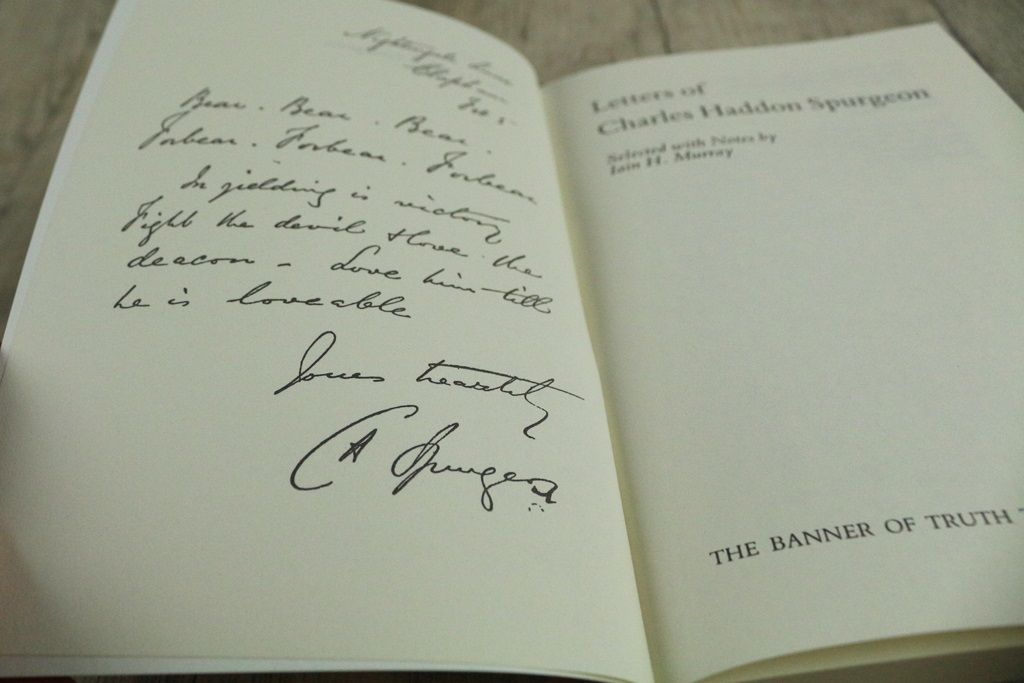 Nightingale Lane
Clapham
Feb 5
Bear. Bear. Bear.
Forbear. Forbear. Forbear
In yielding is victory
Fight the devil & love the
deacon - Love him till
he is loveable
Yours heartily
C H Spurgeon
Letters of
Charles Haddon Spurgeon
Selected with Notes by
Iain H. Murray
THE BANNER OF TRUTH